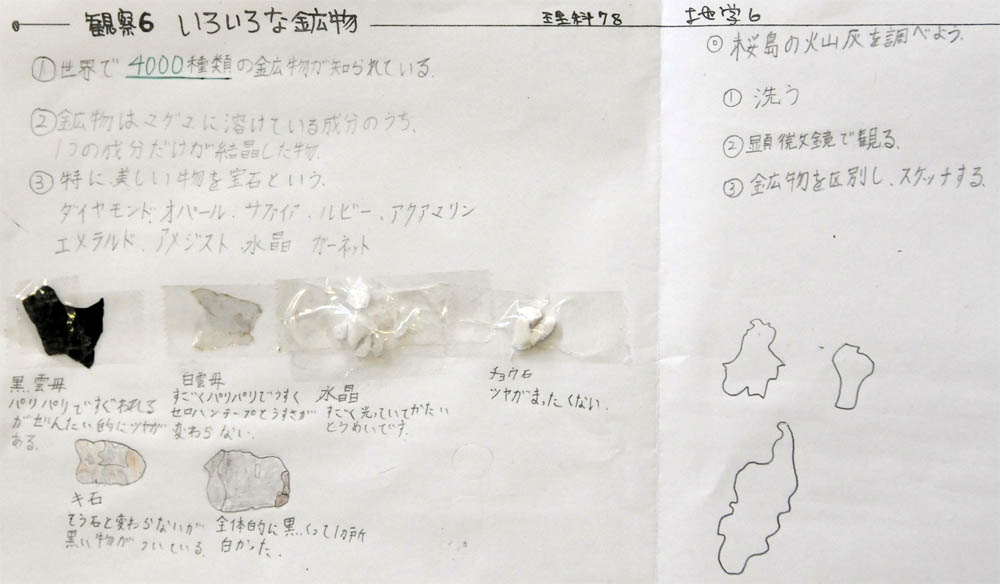 観察6 いろいろな鉱物
理科78
地学6
① 世界で 4000種類の鉱物が知られている.
② 鉱物はマグマに溶けている成分のうち、
1つの成分だけが結晶した物.
③ 特に、美しい物を宝石という.
ダイヤモンド、オパール、サファイア、ルビー、アクアマリン
エメラルド、アメジスト、水晶 ガーネット
◎ 桜島の火山灰を調べよう.
① 洗う
② 顕微鏡で観る.
③ 鉱物を区別し、スケッチする.
黒雲母
パリパリですぐわれる
がぜんたい的にツヤが
ある.
白雲母
すごくパリパリでうすく
セロハンテープとうすさが
変わらない.
水晶
すごく光っていてかたい
とうめいです.
チョウ石
ツヤがまったくない.
キ石
ちょう石と変わらないが
黒い物がついている.
全体的に黒くって1か所
白かった.